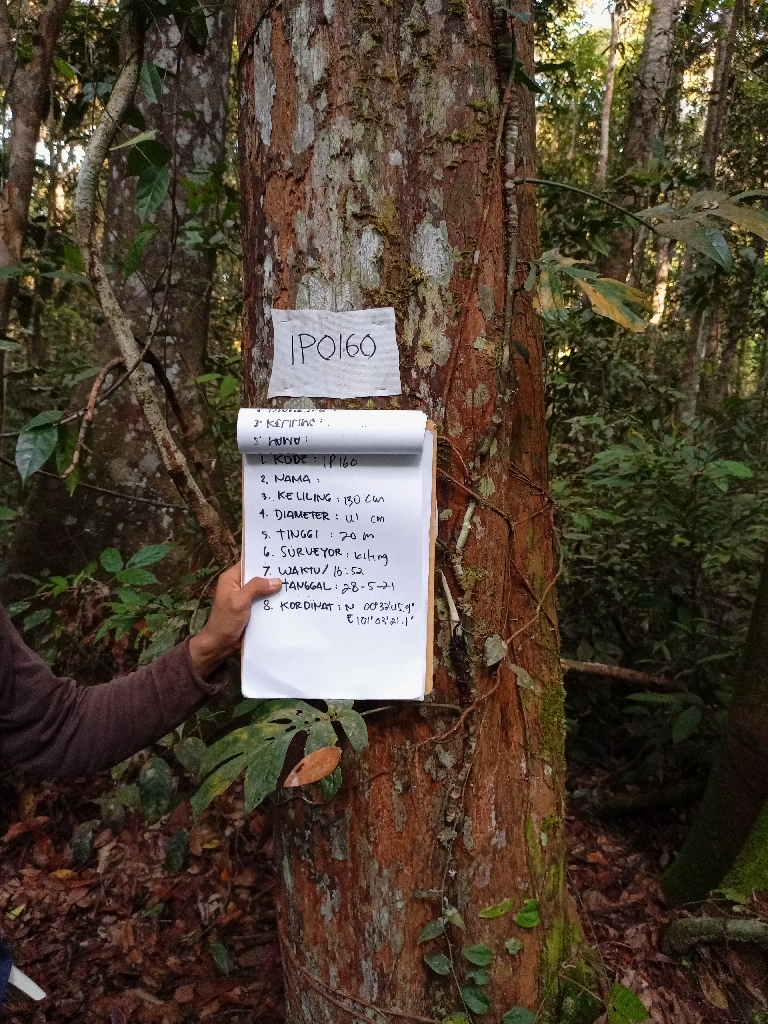 IP0160
3. KELILING :
1. KODE : IP160
2. NAMA :
3. KELILING : 130 cm
4. DIAMETER : 41 cm
5. TINGGI : 20 m
6. SURVEYOR : Kiting
7. WAKTU/ 16:52
TANGGAL : 28-5-21
8. KORDINAT : N 00°32'05.9"
E 101°03'21.1"